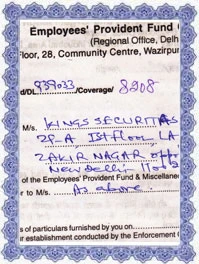 Employees' Provident Fund
(Regional Office, Delh
loor, 28, Community Centre, Wazirpu
d/DL 939033 /Coverage/ 8208
M/s. KINGS SECURITAS
ZAKIR NAGAR
New Delhi
of the Employees' Provident Fund & Miscellane
r to M/s. As above.
s of particulars furnished by you on
ur establishment conducted by the Enforcement